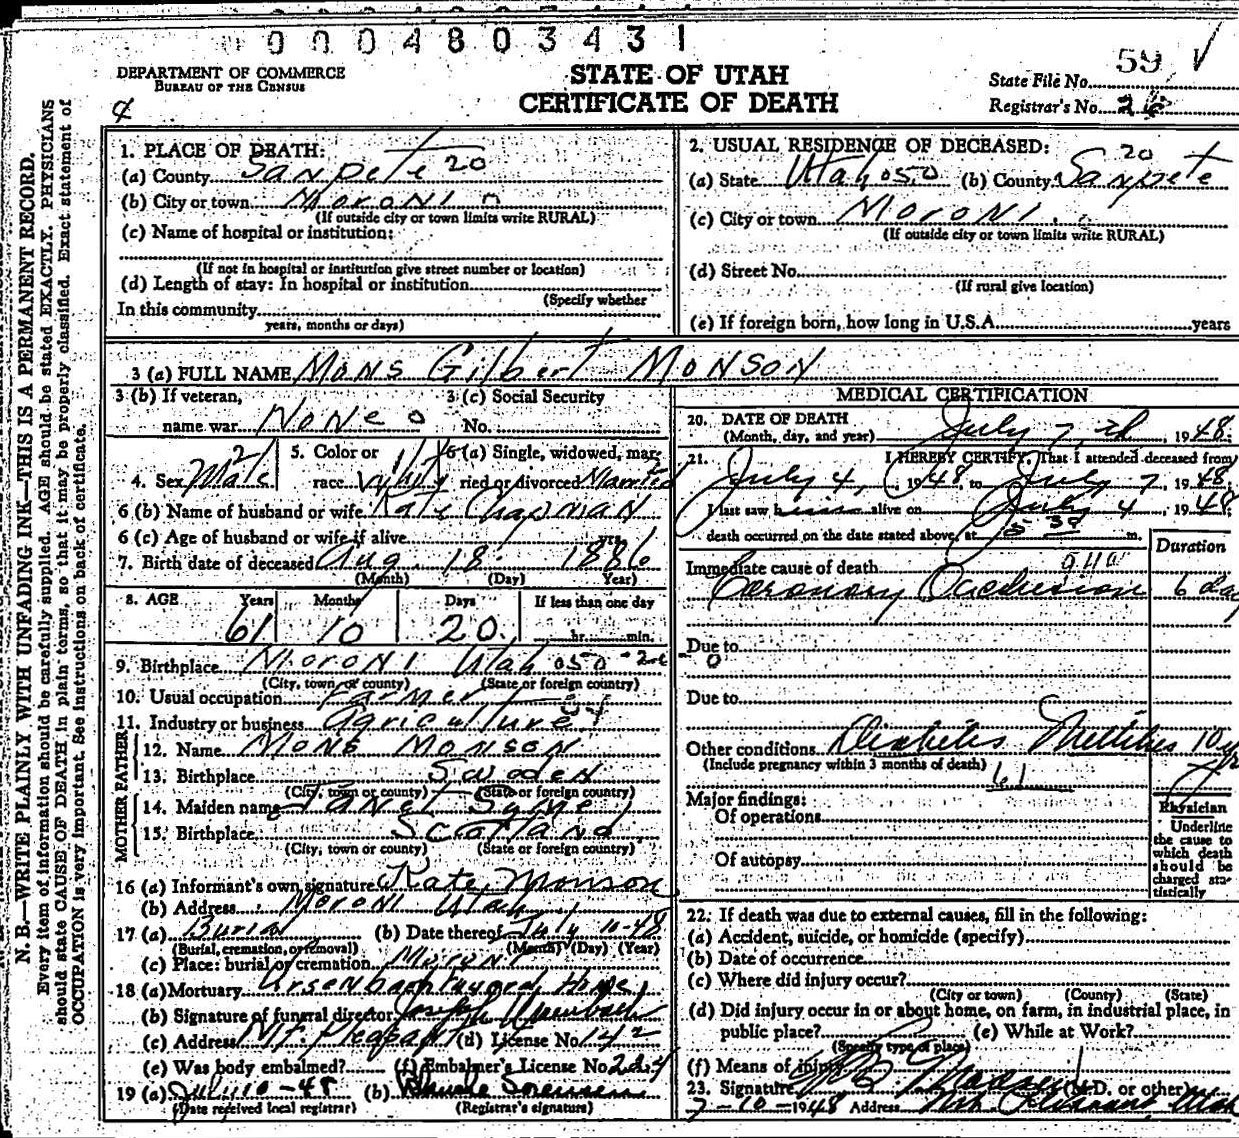 0 0 0 4 8 0 3 4 3 1
DEPARTMENT OF COMMERCE
BUREAU OF THE CENSUS
STATE OF UTAH
CERTIFICATE OF DEATH
59 √
State File No.
Registrar's No. 26
N. B.—WRITE PLAINLY WITH UNFADING INK—THIS IS A PERMANENT RECORD.
Every item of information should be carefully supplied. AGE should be stated EXACTLY. PHYSICIANS
should state CAUSE OF DEATH in plain terms, so that it may be properly classified. Exact statement of
OCCUPATION is very important. See instructions on back of certificate.
1. PLACE OF DEATH:
(a) County Sanpete 20
(b) City or town Moroni 0
(If outside city or town limits write RURAL)
(c) Name of hospital or institution:
(If not in hospital or institution give street number or location)
(d) Length of stay: In hospital or institution
(Specify whether
In this community
years, months or days)
2. USUAL RESIDENCE OF DECEASED:
(a) State Utah 050 (b) County Sanpete 20
(c) City or town Moroni
(If outside city or town limits write RURAL)
(d) Street No.
(If rural give location)
(e) If foreign born, how long in U.S.A. years
3 (a) FULL NAME Mons Gilbert Monson
3 (b) If veteran, 3 (c) Social Security
name war None 0 No.
4. Sex Male 2 5. Color or race White 1 6 (a) Single, widowed, married or divorced Married
6 (b) Name of husband or wife Kate Chapman
6 (c) Age of husband or wife if alive yrs.
7. Birth date of deceased Aug. 18 1886
(Month) (Day) Year)
8. AGE Years Months Days If less than one day
61 10 20 hr. min.
9. Birthplace Moroni Utah 050
(City, town or county) (State or foreign country)
10. Usual occupation Farmer
11. Industry or business Agriculture
FATHER
12. Name Mons Monson
13. Birthplace Sweden
(City, town or county) (State or foreign country)
MOTHER
14. Maiden name Janet Syme
15. Birthplace Scotland
(City, town or county) (State or foreign country)
16 (a) Informant's own signature Kate Monson
(b) Address Moroni Utah
17 (a) Burial (b) Date thereof July 10-48
(Burial, cremation, or removal) (Month) (Day) (Year)
(c) Place: burial or cremation Moroni
18 (a) Mortuary Ursenbach Funeral Home
(b) Signature of funeral director Joseph Ursenbach
(c) Address Mt. Pleasant (d) License No. 142
(e) Was body embalmed? (f) Embalmer's License No. 224
19 (a) July 10-48 (b) Sorensen
(Date received local registrar) (Registrar's signature)
MEDICAL CERTIFICATION
20. DATE OF DEATH
(Month, day, and year) July 7, 1948
21. I HEREBY CERTIFY, That I attended deceased from
July 4, 1948, to July 7, 1948
I last saw him alive on July 4, 1948
death occurred on the date stated above, at 5 30 m.
Duration
Immediate cause of death
Coronary Occlusion 6 day
Due to
0
Due to
Other conditions Diabetes Mellitus 10 yr
(Include pregnancy within 3 months of death) 61
Major findings:
Of operations
Of autopsy
Physician
Underline
the cause to
which death
should be
charged sta-
tistically
22. If death was due to external causes, fill in the following:
(a) Accident, suicide, or homicide (specify)
(b) Date of occurrence
(c) Where did injury occur?
(City or town) (County) (State)
(d) Did injury occur in or about home, on farm, in industrial place, in
public place? (e) While at Work?
(Specify type of place)
(f) Means of injury
23. Signature (M.D. or other)
7-10-1948 Address Mt. Pleasant, Utah